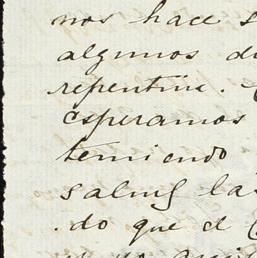 nos hace s
algunos di
repentina.
esperamos
temiendo
salud las
do que el